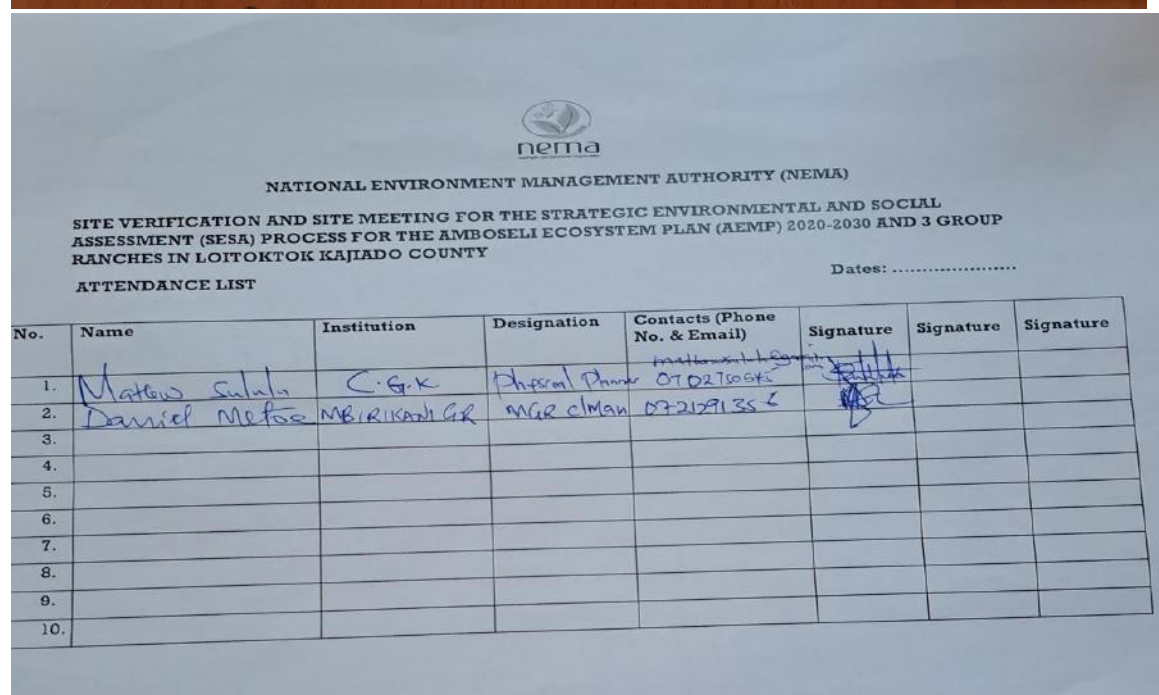 nema
NATIONAL ENVIRONMENT MANAGEMENT AUTHORITY (NEMA)
SITE VERIFICATION AND SITE MEETING FOR THE STRATEGIC ENVIRONMENTAL AND SOCIAL
ASSESSMENT (SESA) PROCESS FOR THE AMBOSELI ECOSYSTEM PLAN (AEMP) 2020-2030 AND 3 GROUP
RANCHES IN LOITOKTOK KAJIADO COUNTY
Dates: .....................
ATTENDANCE LIST
No. Name Institution Designation Contacts (Phone No. & Email) Signature Signature Signature
1. Mattew Sululu C.G.K Physical Planner
2. Daniel MBIRIKANI GR MGR C/Man
3.
4.
5.
6.
7.
8.
9.
10.